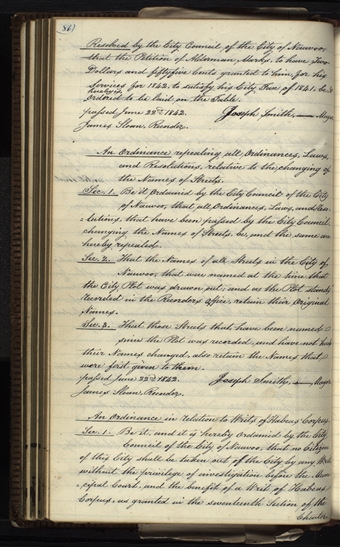 86)
Resolved by the City Council of the City of Nauvoo,
that the Petition of Alderman Marks, to have Two
Dollars and fiftyfive Cents granted to him, for his
Services for 1842, to satisfy his City Tax of 1841, be,
Ordered to be laid on the Table.
passed June 22nd 1842.
Joseph Smith, Mayor
James Sloan, Recorder.
An Ordinance repealing all Ordinances, Laws,
and Resolutions, relative to the changing of
the Names of Streets.
Sec. 1. Be it Ordained by the City Council of the City
of Nauvoo, that all Ordinances, Laws, and Reso-
lutions, that have been passed by the City Council
changing the Names of Streets, be, and the same are
hereby repealed.
Sec. 2. That the Names of all Streets in the City of
Nauvoo, that were named at the time that
the City Plot was drawn out, and as the Plot stands
recorded in the Recorders office, retain their Original
Names.
Sec. 3. That those Streets that have been named
since the Plot was recorded, and have not had
their Names changed, also retain the Names that
were first given to them.
passed June 22nd 1842.
Joseph Smith, Mayor
James Sloan, Recorder.
An Ordinance in relation to Writs of Habeas Corpus.
Sec. 1. Be it, and it is hereby ordained by the City
Council of the City of Nauvoo, that no Citizen
of this City shall be taken out of the City by any Writ
without the privilege of investigation before the Muni-
cipal Court, and the benefit of a Writ of Habeas
Corpus, as granted in the seventeenth Section of the
Charter